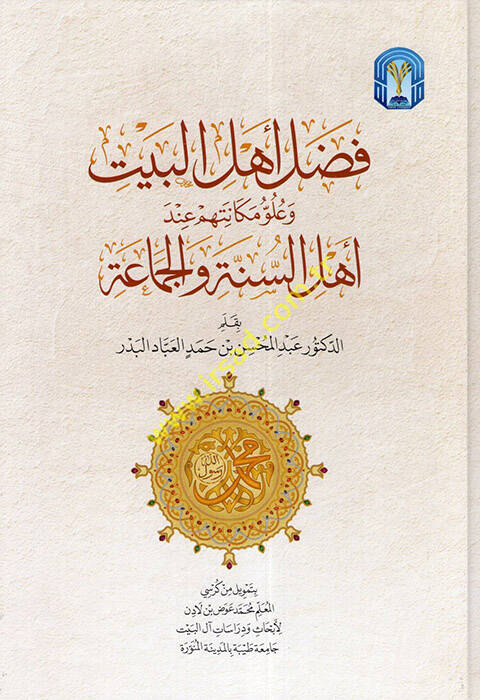 فضل أهل البيت
وعلو مكانتهم عند
أهل السنة والجماعة
بقلم
الدكتور عبد المحسن بن حمد العباد البدر
www.irsad.com.tr
محمد
رسول
الله
بتمويل من كرسي
المعلم محمد عوض بن لادن
لأبحاث ودراسات آل البيت
جامعة طيبة بالمدينة المنورة